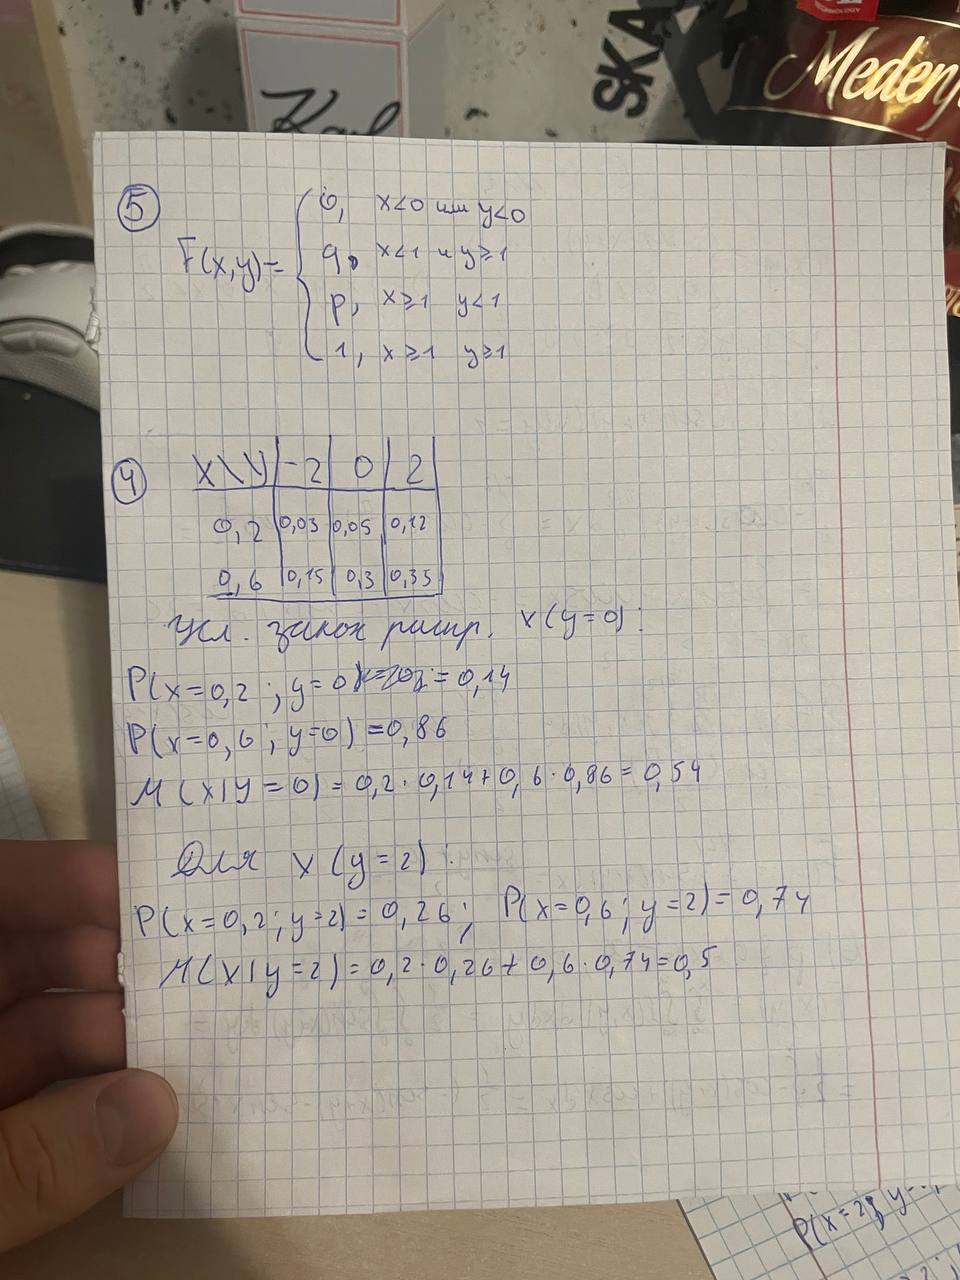 Karl
SKA
Meden
5
F(x,y)=
0, x<0 или y<0
q, x<1 и y≥1
p, x≥1 y<1
1, x≥1 y≥1
4
X\Y -2 0 2
0,2 0,03 0,05 0,12
0,6 0,15 0,3 0,35
Усл. закон распр. x(y=0):
P(x=0,2; y=0) = 0,14
P(x=0,6; y=0) = 0,86
M(X|Y=0) = 0,2·0,14+0,6·0,86=0,54
Для x (y=2):
P(x=0,2; y=2) = 0,26; P(x=0,6; y=2) = 0,74
M(X|y=2) = 0,2·0,26+0,6·0,74=0,5
P(x=2; y=